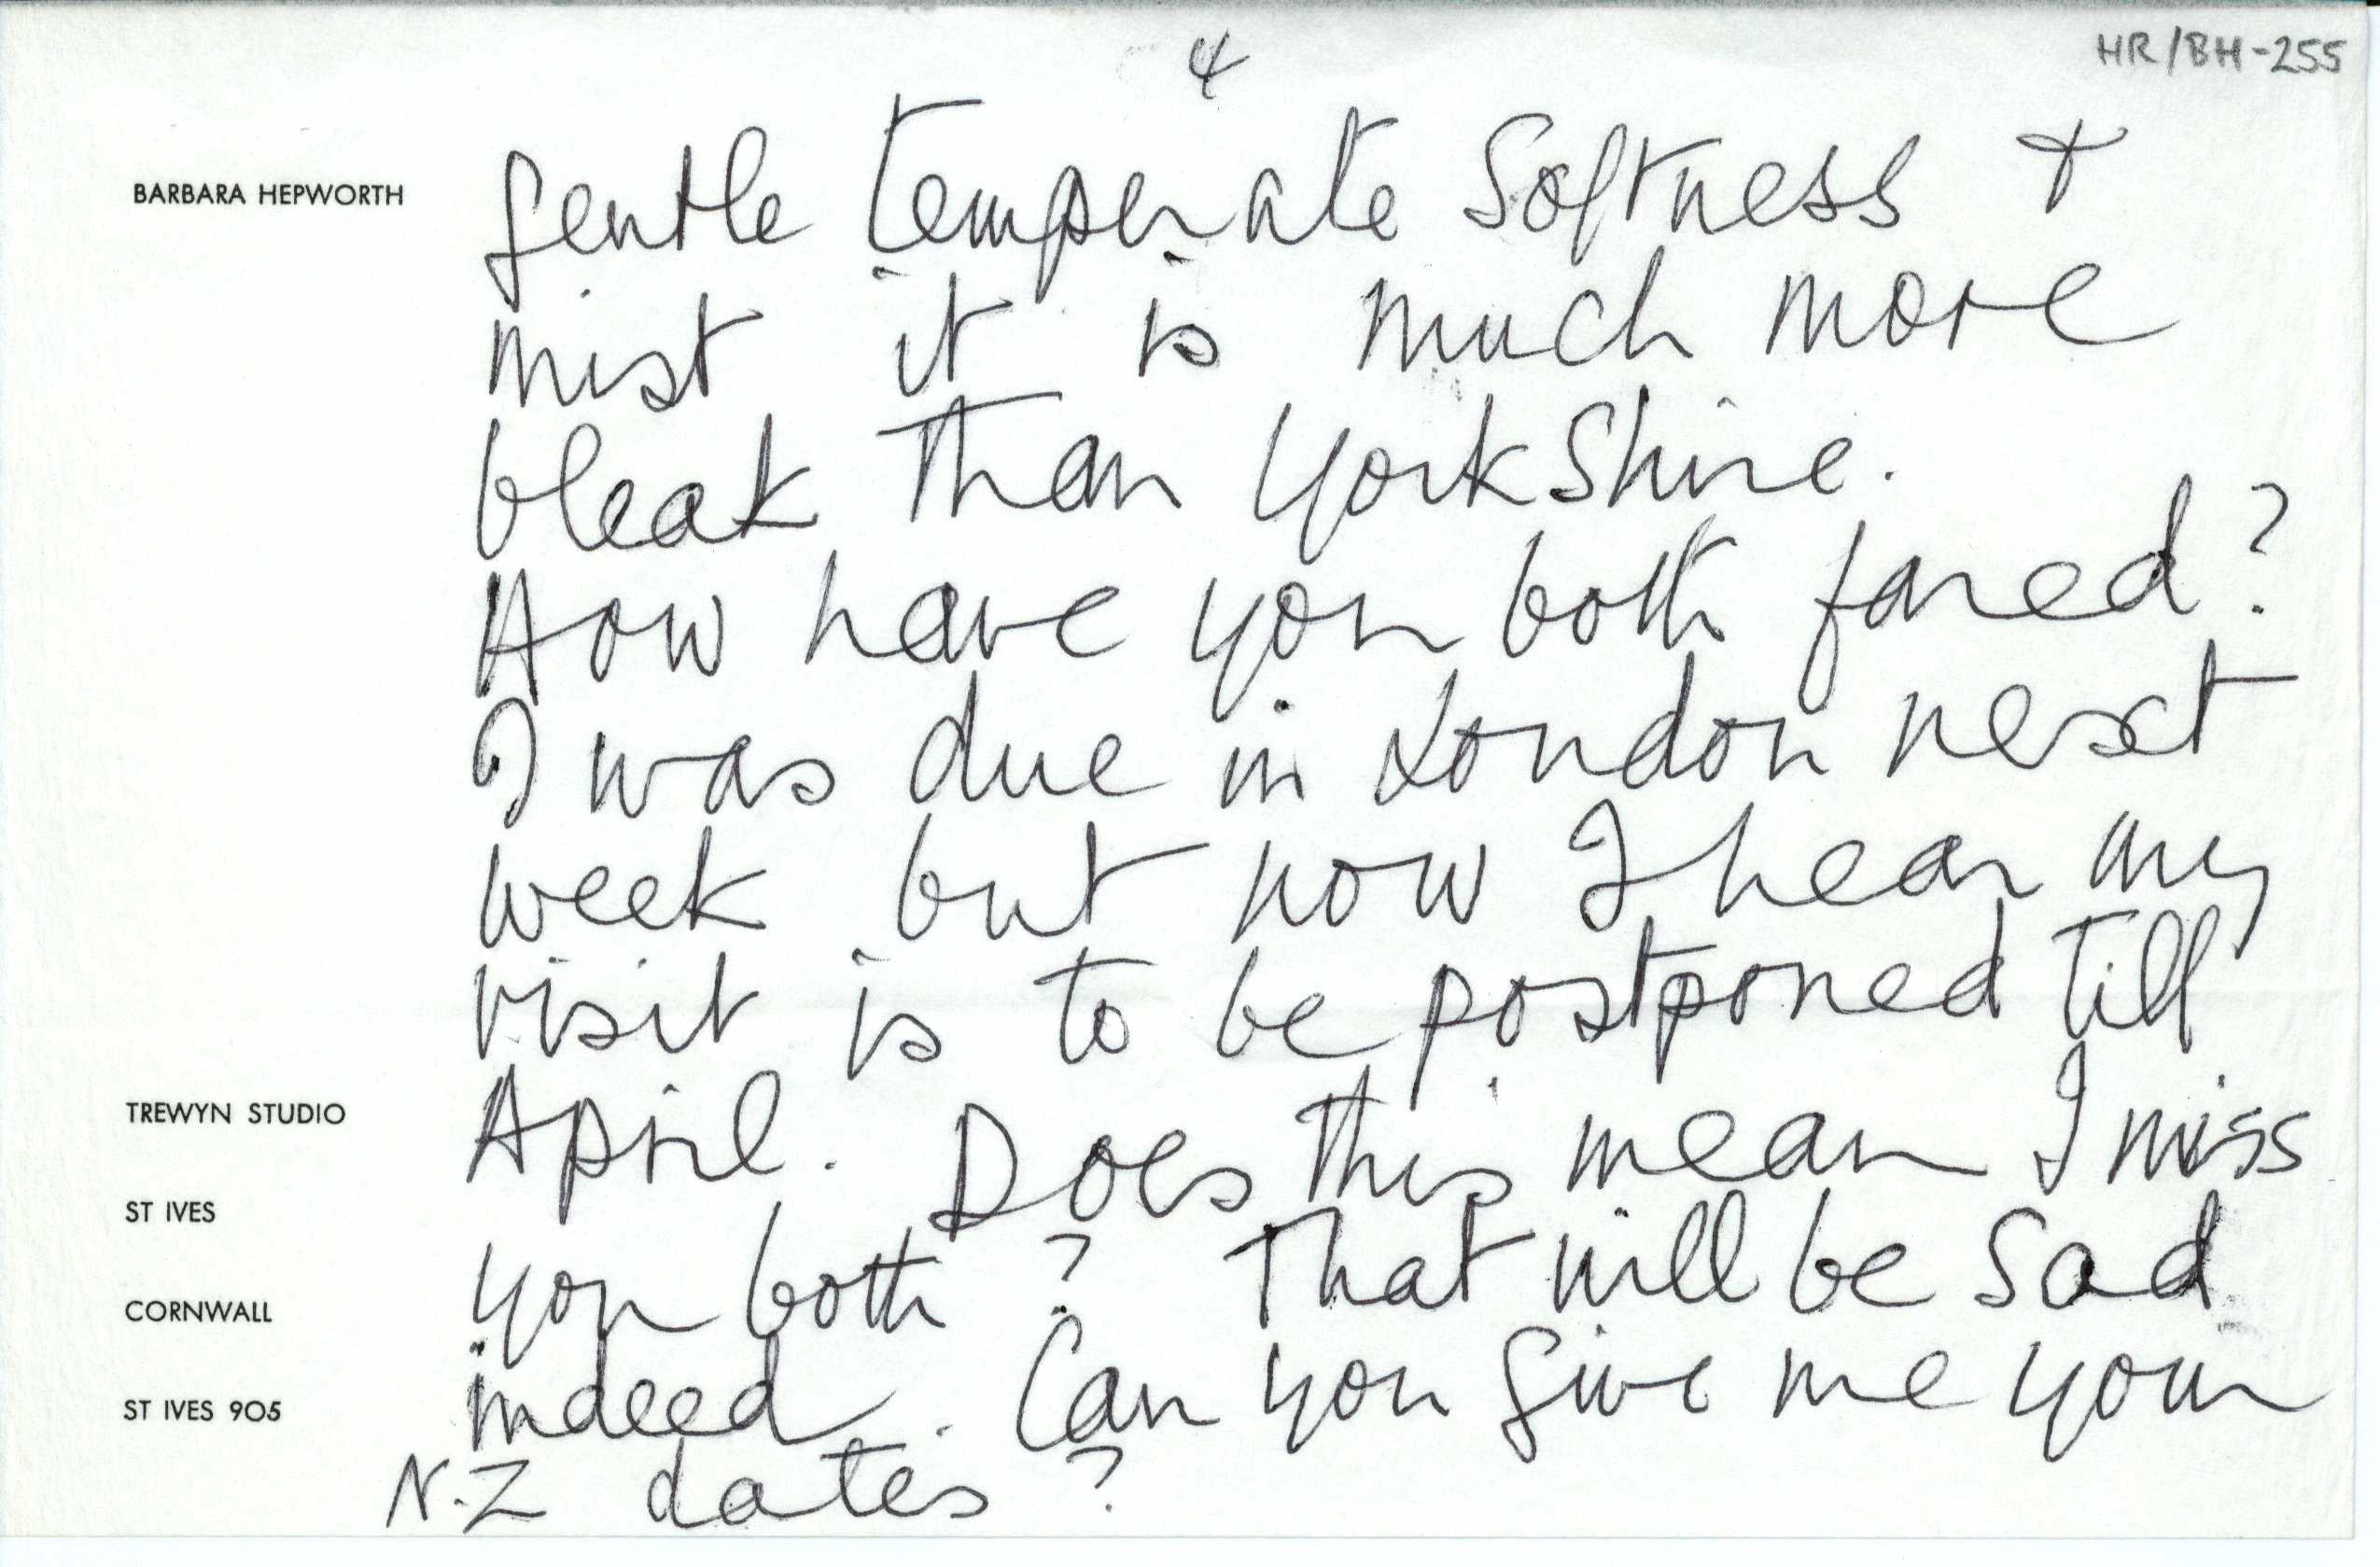 4
HR/BH-255
BARBARA HEPWORTH
gentle temperate softness +
mist it is much more
bleak than Yorkshire.
How have you both fared?
I was due in London next
week but now I hear my
visit is to be postponed till
April. Does this mean I miss
you both? That will be sad
indeed. Can you give me your
N.Z dates?
TREWYN STUDIO
ST IVES
CORNWALL
ST IVES 905